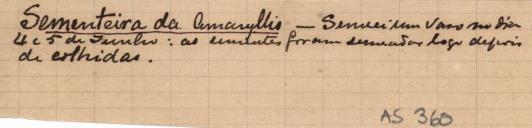 Sementeira da Amaryllis — Semeei um vaso no dia
4 e 5 de Junho: as sementes foram semeadas logo depois
de colhidas.
AS 360